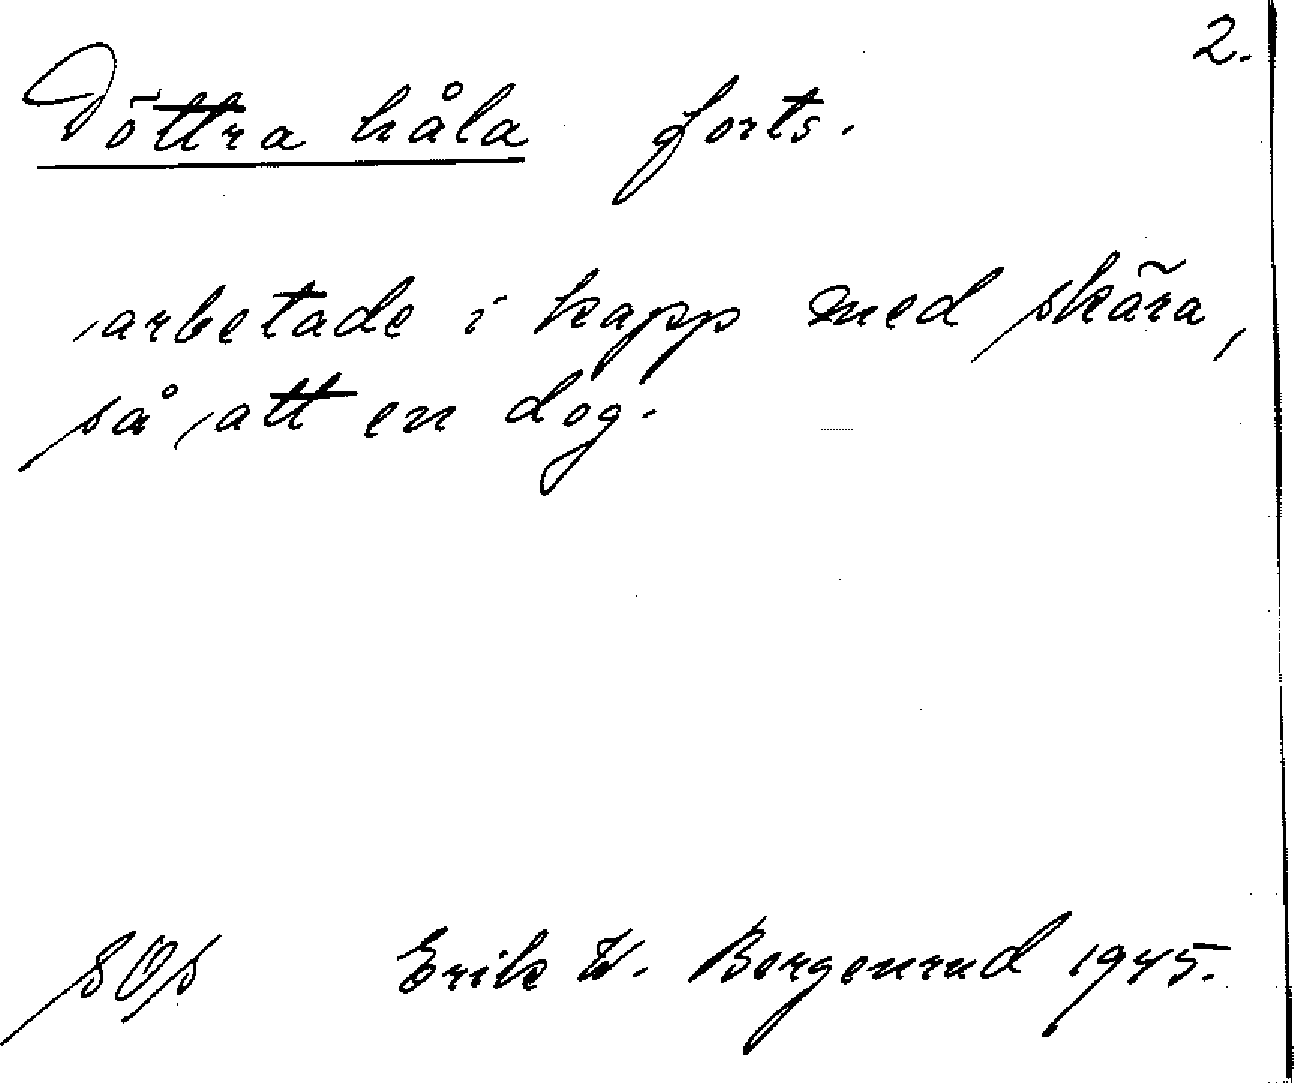 2.
Döttra håla forts.
arbetade i kapp med skära,
så att en dog.
Erik W. Bergenrud 1945.